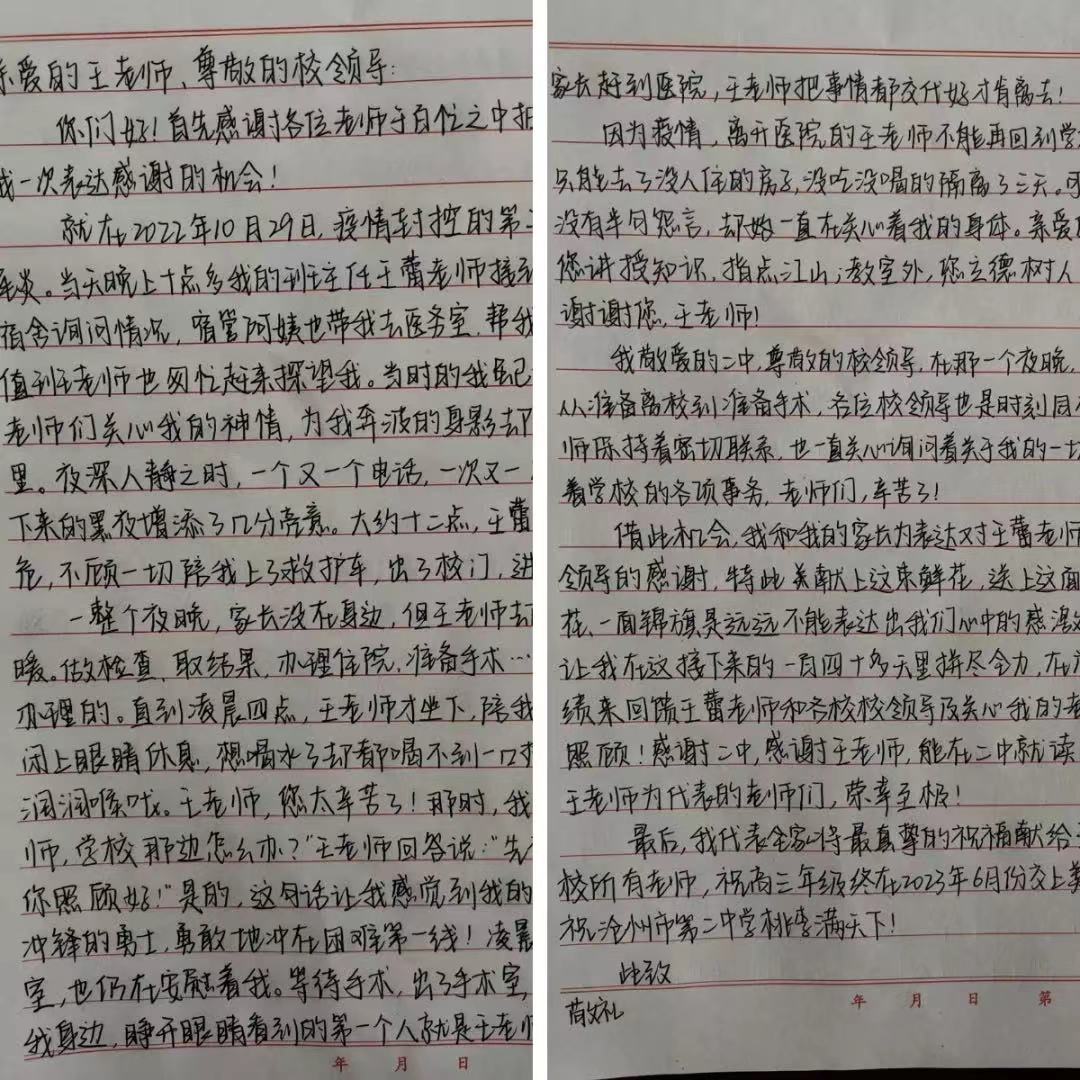 亲爱的王老师、尊敬的校领导:
你们好!首先感谢各位老师于百忙之中抽
我一次表达感谢的机会!
就在2022年10月29日,疫情封控的第二
尾炎。当天晚上十点多我的班主任王蕾老师接到
宿舍询问情况,宿管阿姨也带我去医务室,帮我
值班王老师也匆忙赶来探望我。当时的我虽已
老师们关心我的神情,为我奔波的身影却
里。夜深人静之时,一个又一个电话,一次又一
下来的黑夜增添了几分亮意。大约十二点,王蕾
危,不顾一切陪我上了救护车,出了校门,进
一整个夜晚,家长没在身边,但王老师却
暖。做检查,取结果,办理住院,准备手术…
办理的。直到凌晨四点,王老师才坐下,陪我
闭上眼睛休息,想喝水了却都喝不到一口
润润喉咙。王老师,您太辛苦了!那时,我
师,学校那边怎么办?"王老师回答说:"先
你照顾好!"是的,这句话让我感觉到我的
冲锋的勇士,勇敢地冲在困难第一线!凌晨
室,也仍在安慰着我。等待手术,出了手术室,
我身边,睁开眼睛看到的第一个人就是王老师
年 月 日
家长赶到医院,王老师把事情都交代好才肯离去!
因为疫情,离开医院的王老师不能再回到学
只能去了没人住的房子,没吃没喝的隔离了三天。可
没有半句怨言,却始一直在关心着我的身体。亲爱
您讲授知识,指点江山;教室外,您立德树人
谢谢您,王老师!
我敬爱的二中,尊敬的校领导,在那一个夜晚,
从准备离校到准备手术,各位校领导也是时刻同
师保持着密切联系,也一直关心询问着关于我的一切
着学校的各项事务,老师们,辛苦了!
借此机会,我和我的家长为表达对王蕾老师
领导的感谢,特此美献上这束鲜花,送上这面
花、一面锦旗是远远不能表达出我们心中的感激
让我在这接下来的一百四十多天里拼尽全力,在
绩来回馈王蕾老师和各校校领导及关心我的老
照顾!感谢二中,感谢王老师,能在二中就读
王老师为代表的老师们,荣幸至极!
最后,我代表全家将最真挚的祝福献给
校所有老师,祝高三年级终在2023年6月份交上美
祝沧州市第二中学桃李满天下!
此致
敬礼
年 月 日 第